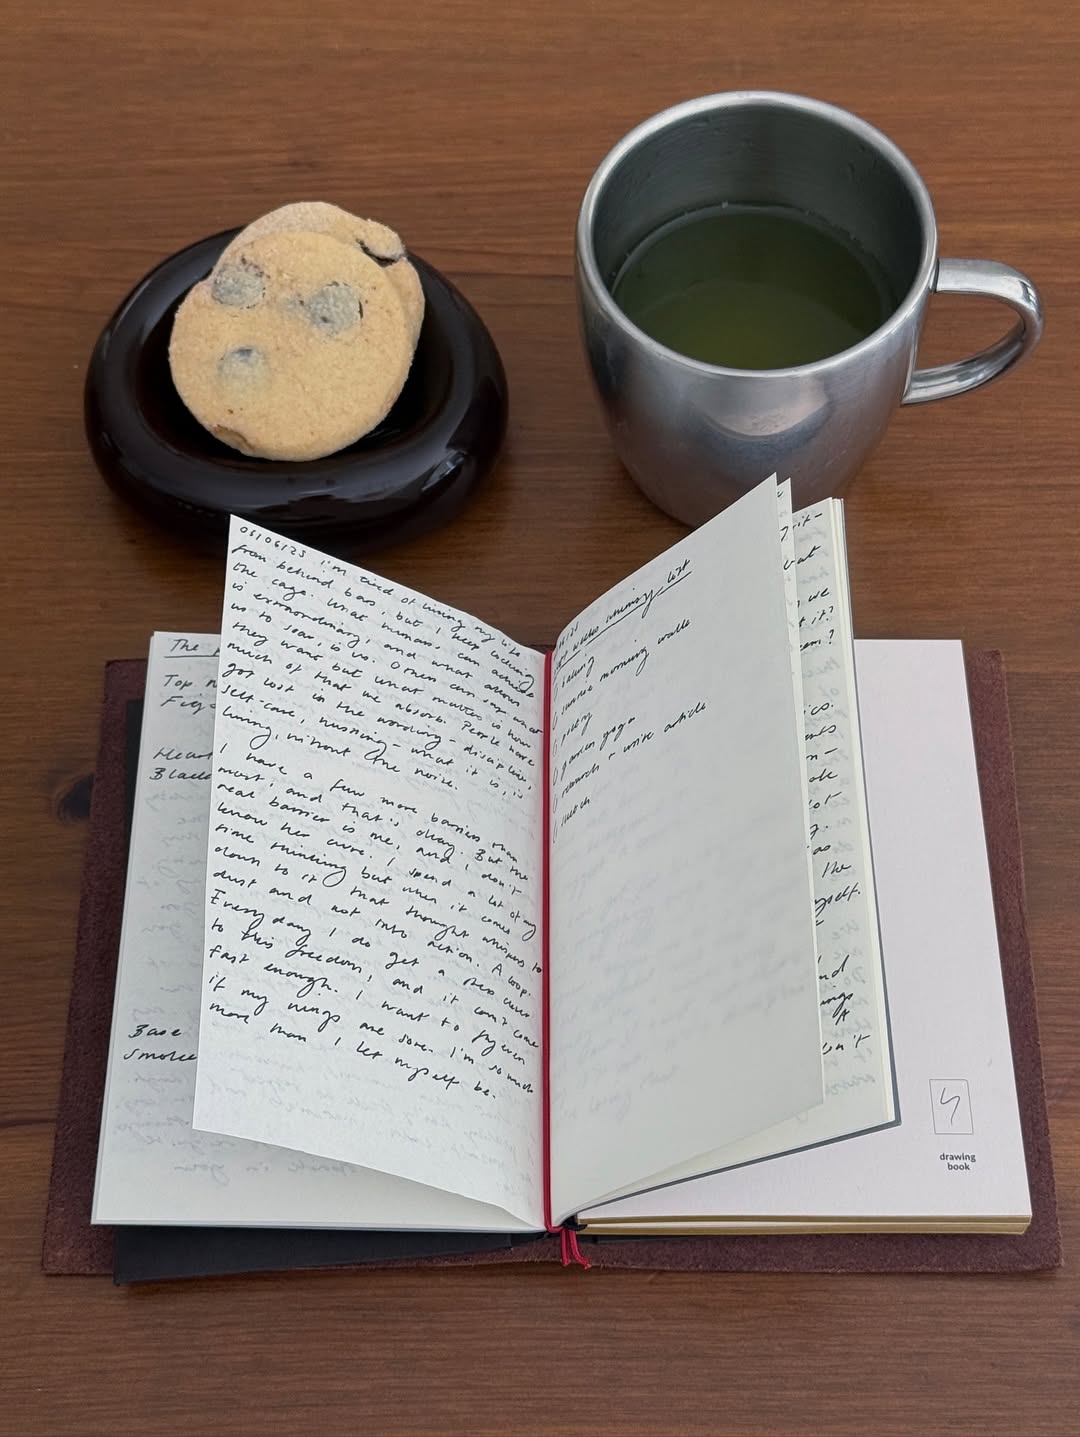 The
Top
Heart
Black
Base
Smoke
05/06/25 I'm tired of living my life
from behind bars, but I keep locking
the cage. What humans can achieve
is extraordinary, and what allows
us to soar, is us. Others can say what
they want but what matters is how
much of that we absorb. People have
got lost in the wording - discipline,
self-care, nussing - what it is, is
living, without the noise.
I have a few more barriers than
most, and that's okay. But the
real barrier is me, and I don't
know her cure. I spend a lot of my
time thinking but when it comes
down to it that thought whispers to
dust and not into action. A loop.
Every day I do get a step closer
to this freedom, and it can't come
fast enough. I want to fly even
if my wings are sore. I'm so much
more than I let myself be.
whimsy list
baking
sunrise morning walk
poetry
garden yoga
research + write article
sketch
what
we
it?
the
myself.
and
A
drawing
book